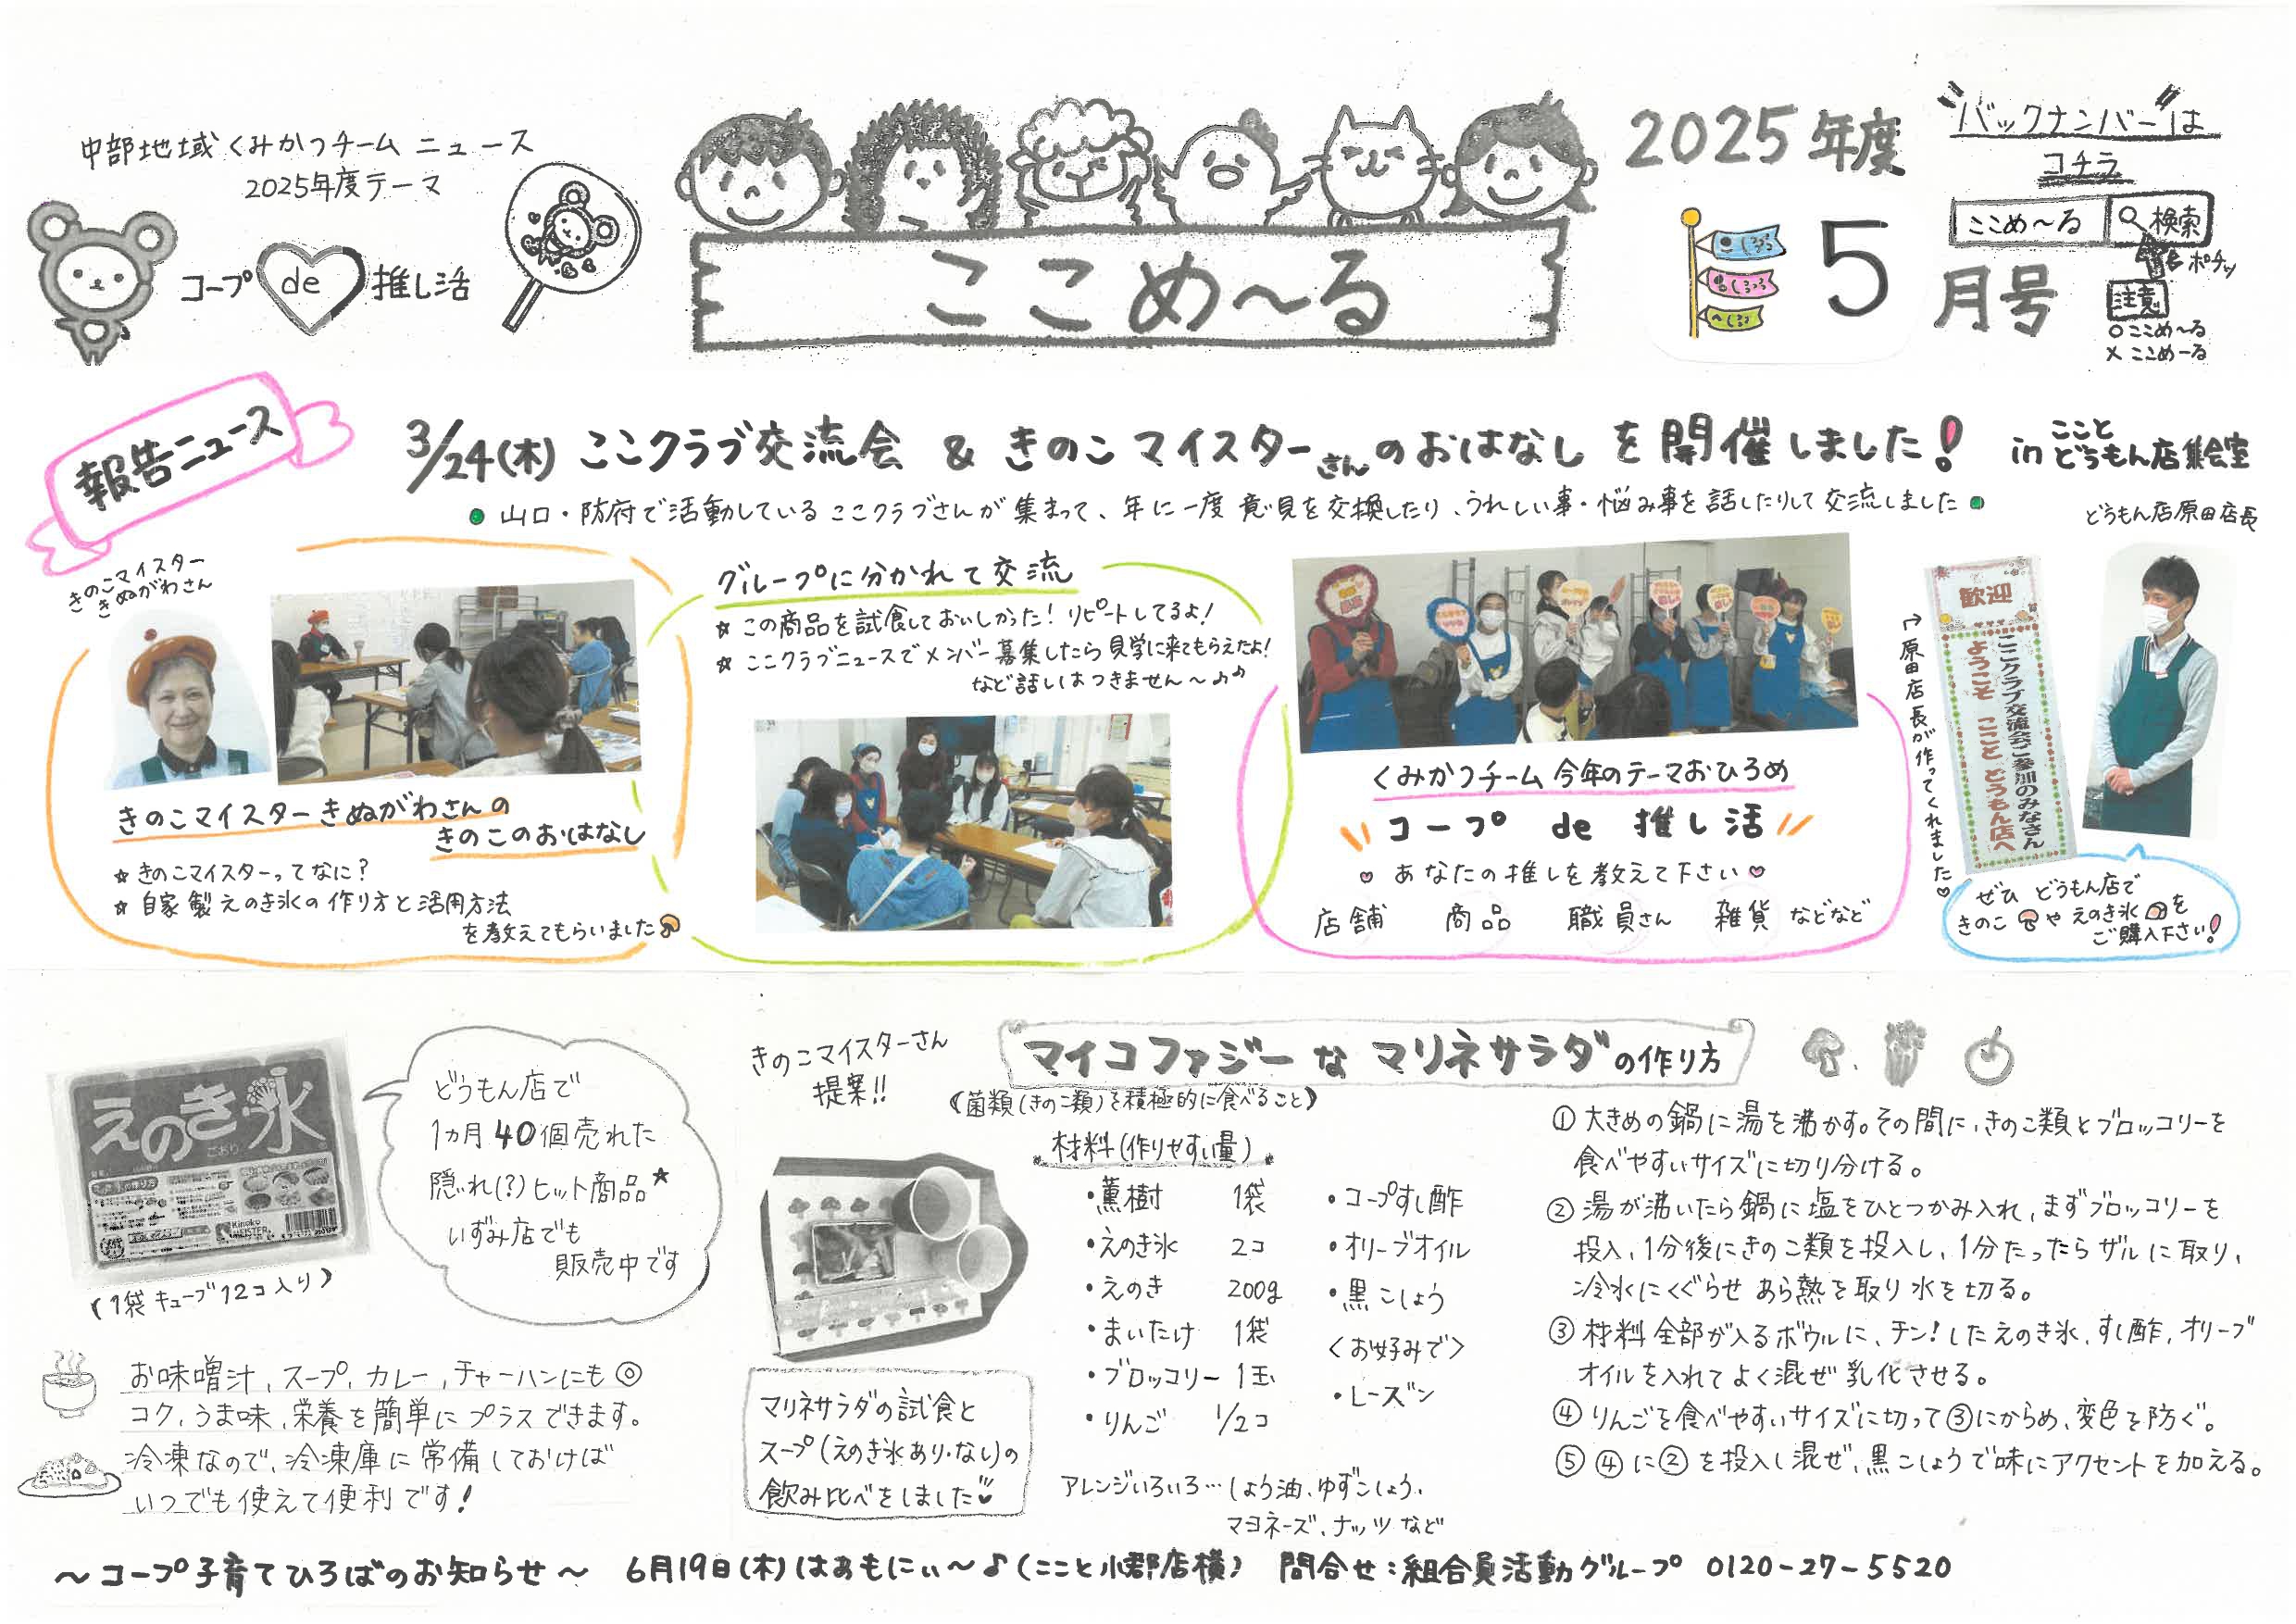 中部地域くみかつチーム ニュース
2025年度テーマ
コープ de 推し活
ここめ〜る
2025年度
5月号
"バックナンバー"は
コチラ
ここめ〜る 検索
ポチッ
注意
○ここめ〜る
×ここめーる
報告ニュース
3/24(木) ここクラブ交流会 & きのこマイスターさんのおはなし を開催しました!
in こことどうもん店集会室
●山口・防府で活動しているここクラブさんが集まって、年に一度意見を交換したり、うれしい事・悩み事を話したりして交流しました●
どうもん店原田店長
きのこマイスター
きぬがわさん
きのこマイスターきぬがわさんの
きのこのおはなし
☆きのこマイスターってなに?
☆自家製えのき氷の作り方と活用方法
を教えてもらいました
グループに分かれて交流
☆この商品を試食しておいしかった!リピートしてるよ!
☆ここクラブニュースでメンバー募集したら見学に来てもらえたよ!
など話しはつきません〜♪♪
くみかつチーム今年のテーマおひろめ
コープ de 推し活
♡あなたの推しを教えて下さい♡
店舗 商品 職員さん 雑貨 などなど
→原田店長が作ってくれました♡
歓迎
ここクラブ交流会ご参加のみなさん
ようこそ ここと どうもん店へ
ぜひ どうもん店で
きのこ や えのき氷 を
ご購入下さい!
えのき氷
ごおり
Kinoko
MEISTER
(1袋キューブ12コ入り)
どうもん店で
1ヵ月40個売れた
隠れ(?)ヒット商品★
いずみ店でも
販売中です
お味噌汁、スープ、カレー、チャーハンにも◎
コク、うま味、栄養を簡単にプラスできます。
冷凍なので、冷凍庫に常備しておけば
いつでも使えて便利です!
きのこマイスターさん
提案!!
"マイコファジーなマリネサラダ"の作り方
《菌類(きのこ類)を積極的に食べること》
マリネサラダの試食と
スープ(えのき氷あり・なし)の
飲み比べをしました
材料(作りやすい量)
・薫樹 1袋
・えのき氷 2コ
・えのき 200g
・まいたけ 1袋
・ブロッコリー 1玉
・りんご 1/2コ
・コープすし酢
・オリーブオイル
・黒こしょう
<お好みで>
・レーズン
アレンジいろいろ…しょう油、ゆずこしょう、
マヨネーズ、ナッツなど
①大きめの鍋に湯を沸かす。その間に、きのこ類とブロッコリーを
食べやすいサイズに切り分ける。
②湯が沸いたら鍋に塩をひとつかみ入れ、まずブロッコリーを
投入、1分後にきのこ類を投入し、1分たったらザルに取り、
冷水にくぐらせあら熱を取り水を切る。
③材料全部が入るボウルに、チン!したえのき氷、すし酢、オリーブ
オイルを入れてよく混ぜ乳化させる。
④りんごを食べやすいサイズに切って③にからめ、変色を防ぐ。
⑤④に②を投入し混ぜ、黒こしょうで味にアクセントを加える。
〜コープ子育てひろばのお知らせ〜 6月19日(木)はぁもにぃ〜♪(ここと小郡店横) 問合せ:組合員活動グループ 0120-27-5520